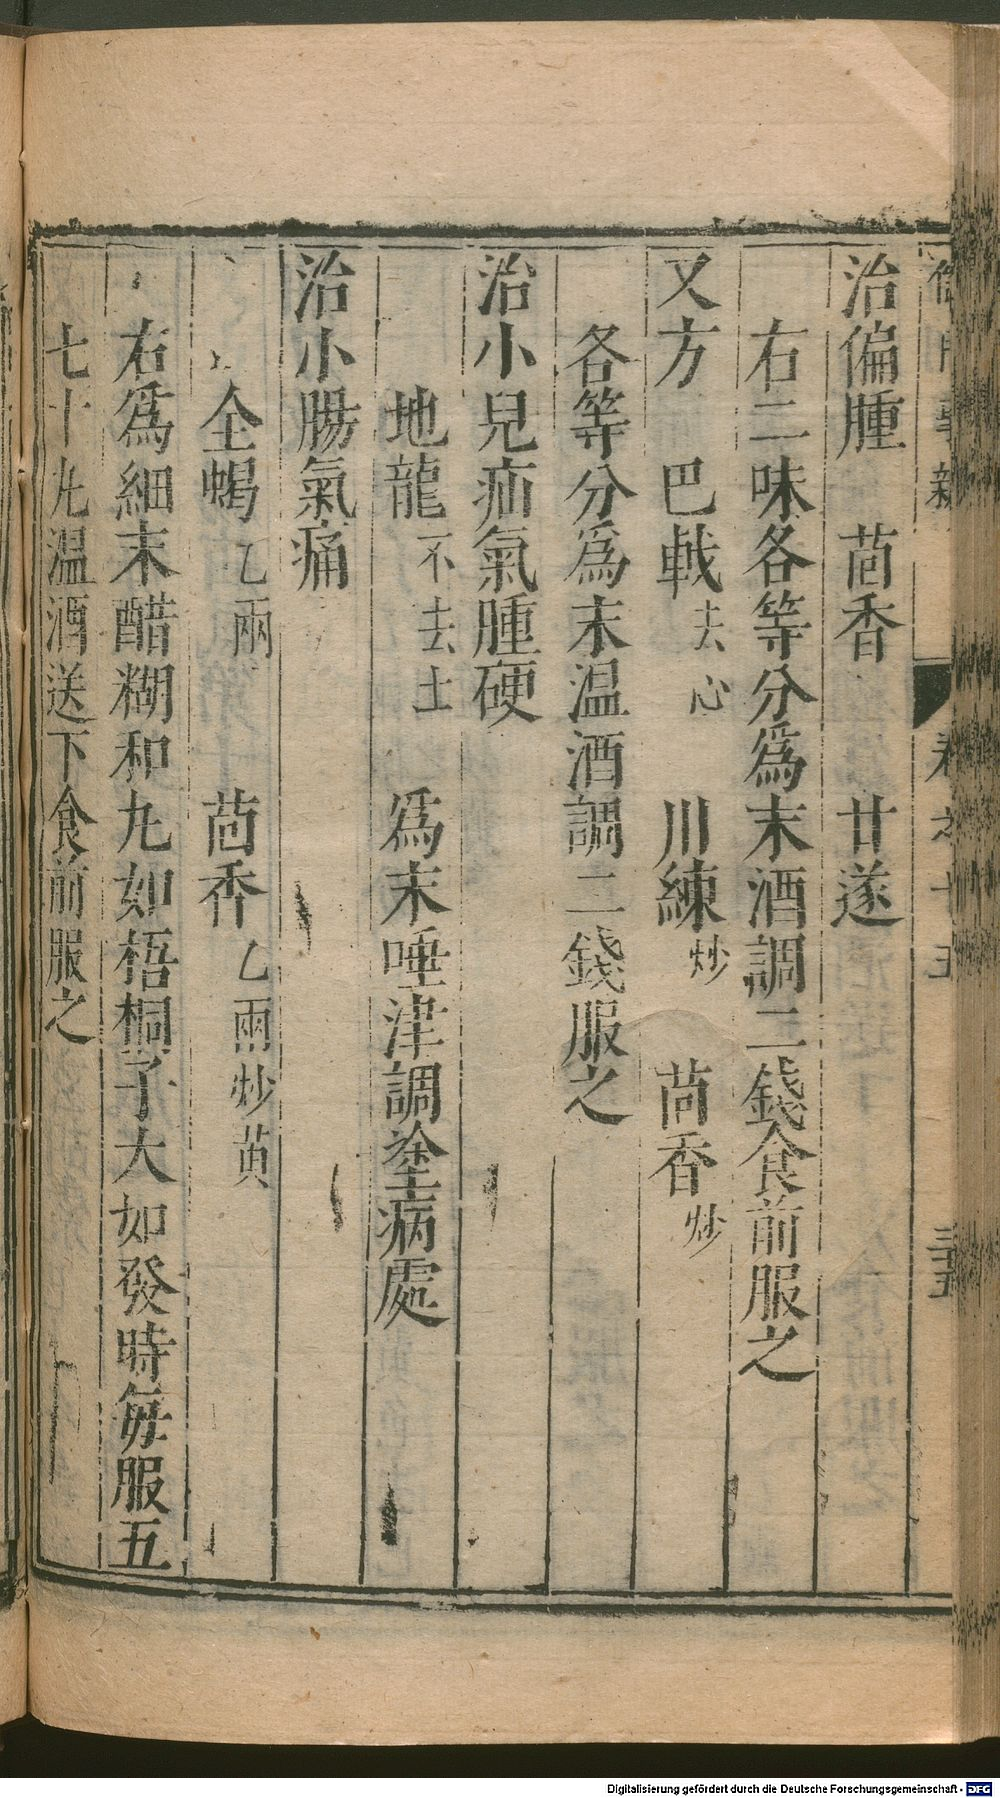 卷之十五
三五
治偏腫　茴香　甘遂
右二味各等分爲末酒調二錢食前服之
又方　巴戟去心　川練炒　茴香炒
各等分爲末温酒調二錢服之
治小兒疝氣腫硬
地龍不去土　爲末唾津調塗病處
治小腸氣痛
全蝎乙兩　茴香乙兩炒黄
右爲細末醋糊和丸如梧桐子大如發時每服五
七十丸温酒送下食前服之
Digitalisierung gefördert durch die Deutsche Forschungsgemeinschaft - DFG